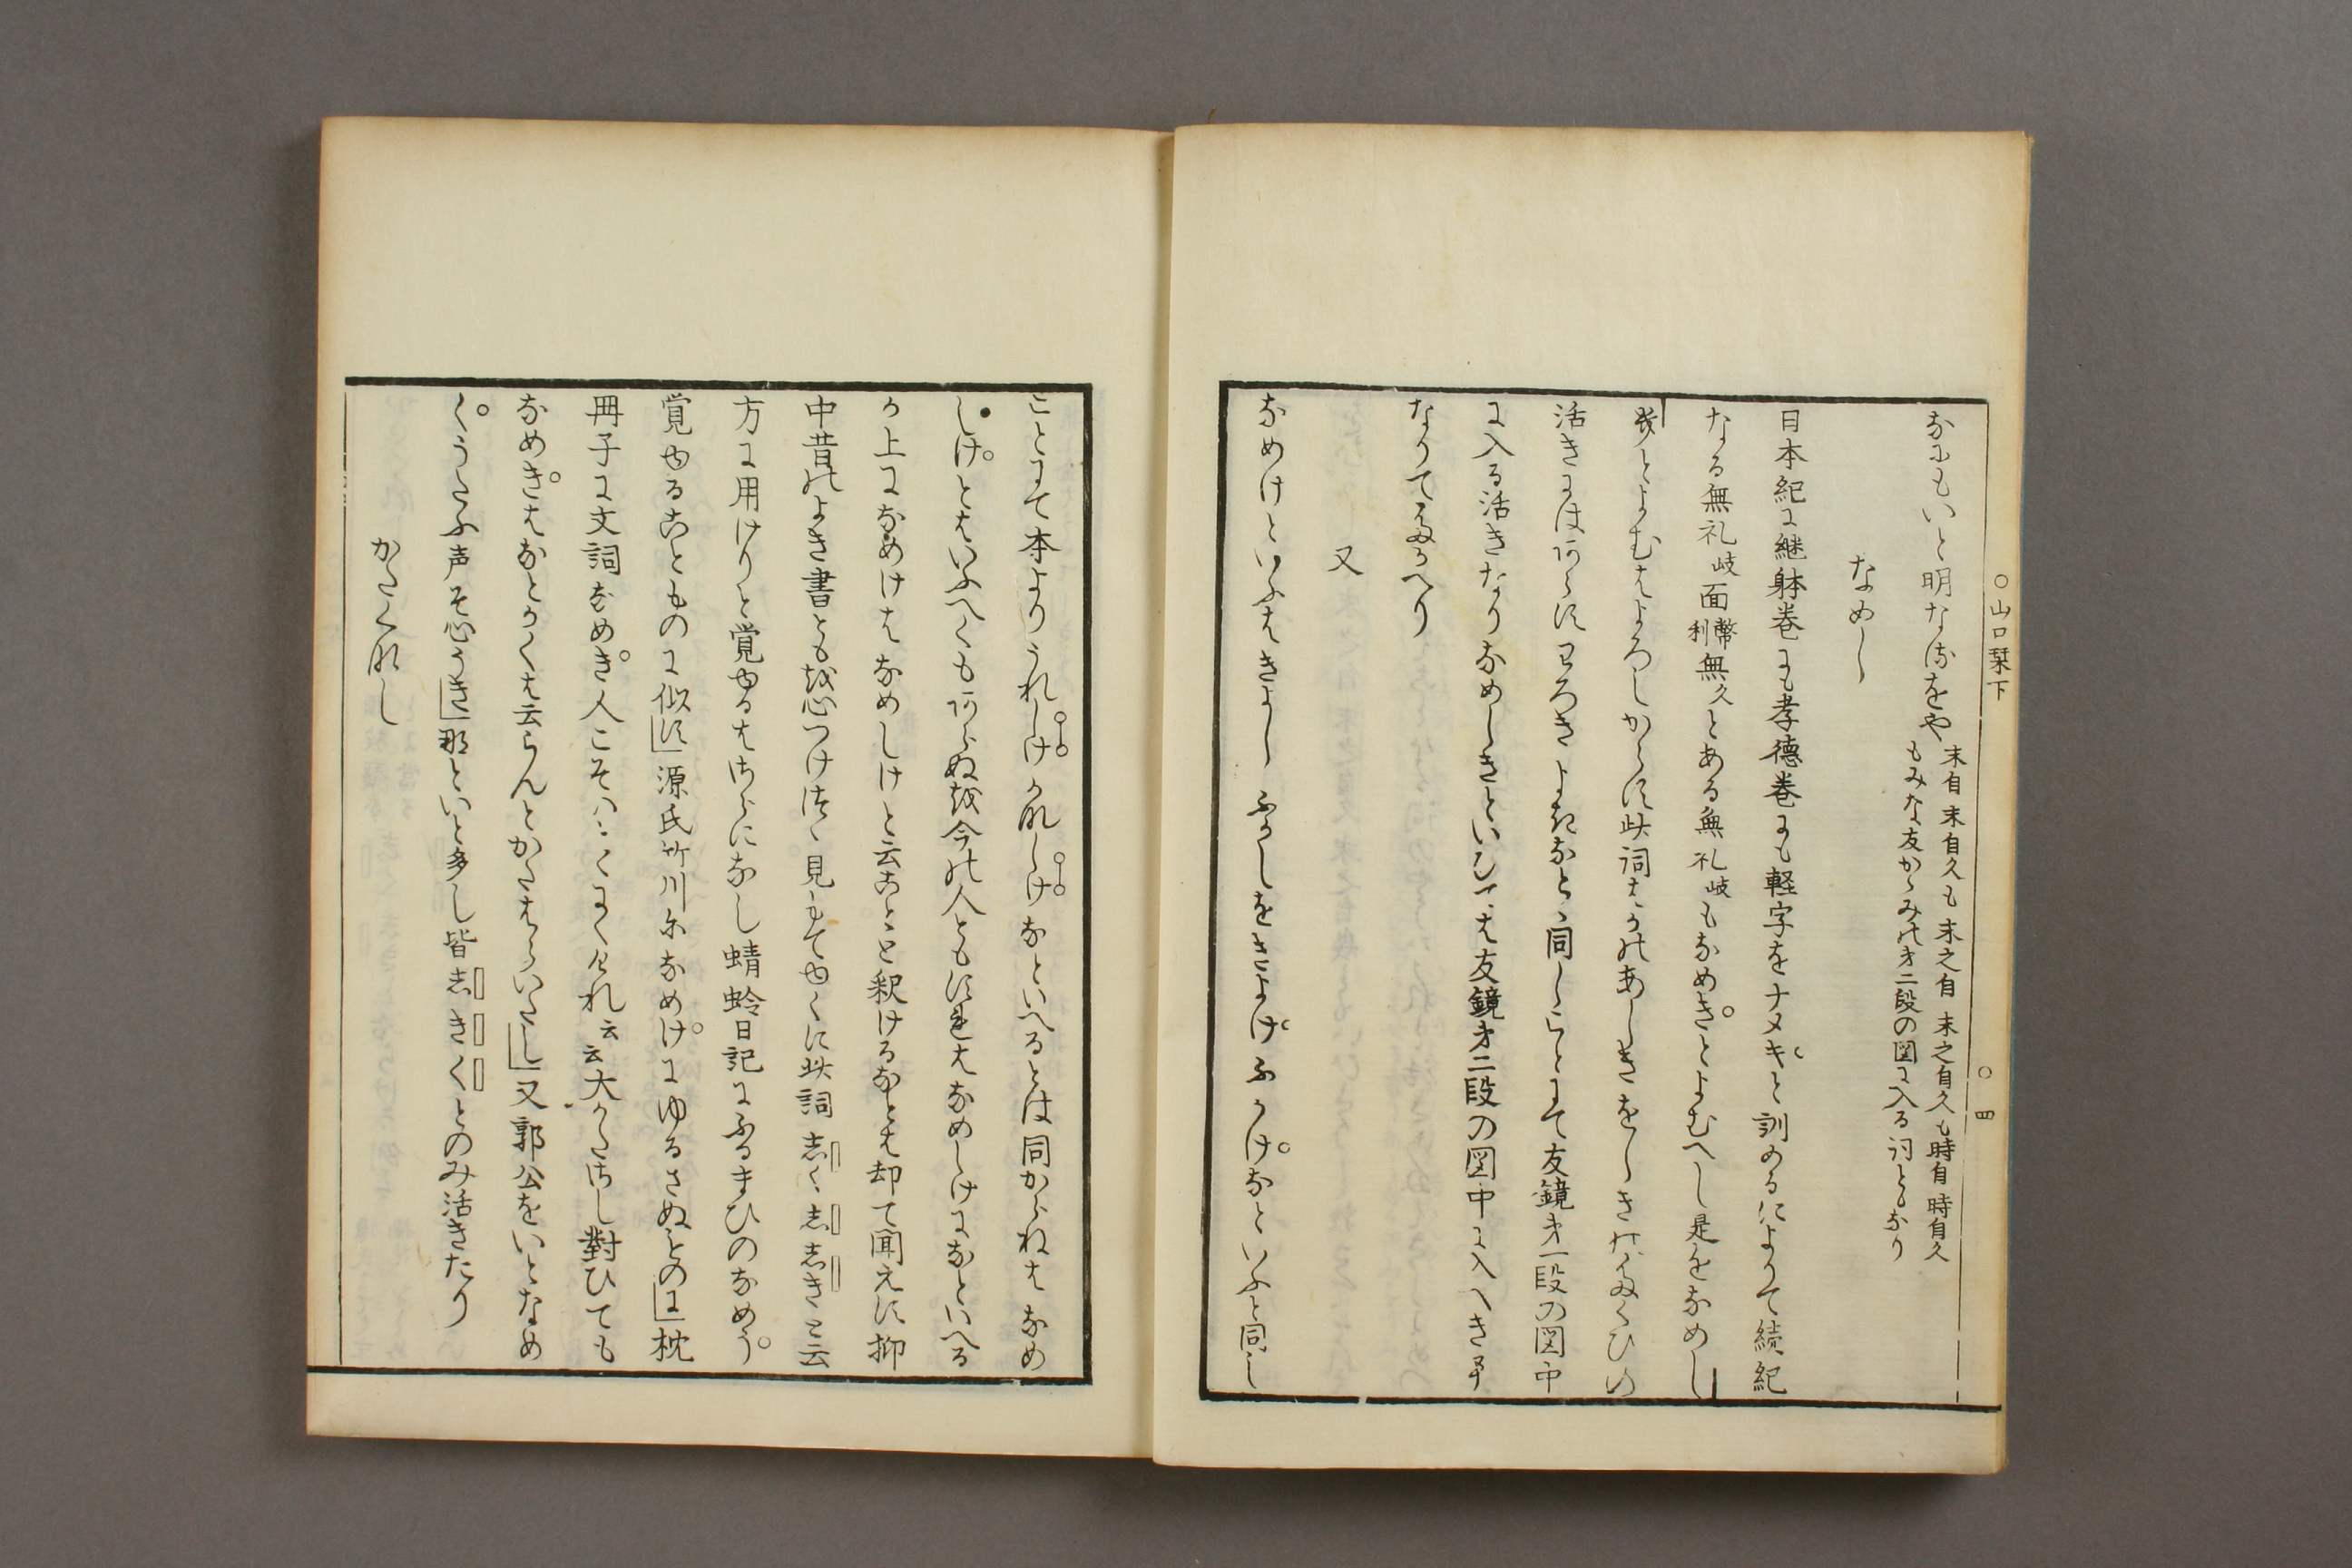 ○山口栞下 ○四
なにもいと明なるをや
末自末自久も末之自末之自久も時自時自久
もみな友かゝみの才二段の図に入る詞ともなり
なめし
日本紀に継躰巻にも孝徳巻にも軽字をナメキと訓めるによりて続紀
なる無礼岐面幣利無久とある無礼岐もなめきとよむへし是をなめし
とよむはよろしからす此詞はかのあしきをしきのたくひの
活きにはあらすひろきよきなと同しことにて友鏡才一段の図中
に入る活きなりなめしきといひては友鏡才二段の図中に入へき事
なりてたかへり
又
なめけといふはきよしふかしをきよけふかけなといふと同し
ことにて本よりうれしけかなしけなといへるとは同からねはなめ
しけとはいふへくもあらぬを今の人ともすればなめしけになといへる
か上になめけはなめしけと云ことゝ釈けるなとは却て聞えす抑
中昔のよき書ともを心つけつゝ見もてゆくに此詞志くゝ志志きと云
方に用けりと覚ゆるはさらになし蜻蛉日記にふるまひのなめう
覚ゆることものに似す源氏竹川になめけにゆるさぬとのに枕
冊子に文詞なめき人こそいとゝにくけれ云云大かたさし對ひても
なめきはなとかく云らんとかたはらいたし又郭公をいとなめ
くうたふ声そ心うき那といと多し皆志きくとのみ活きたり
かたくなし